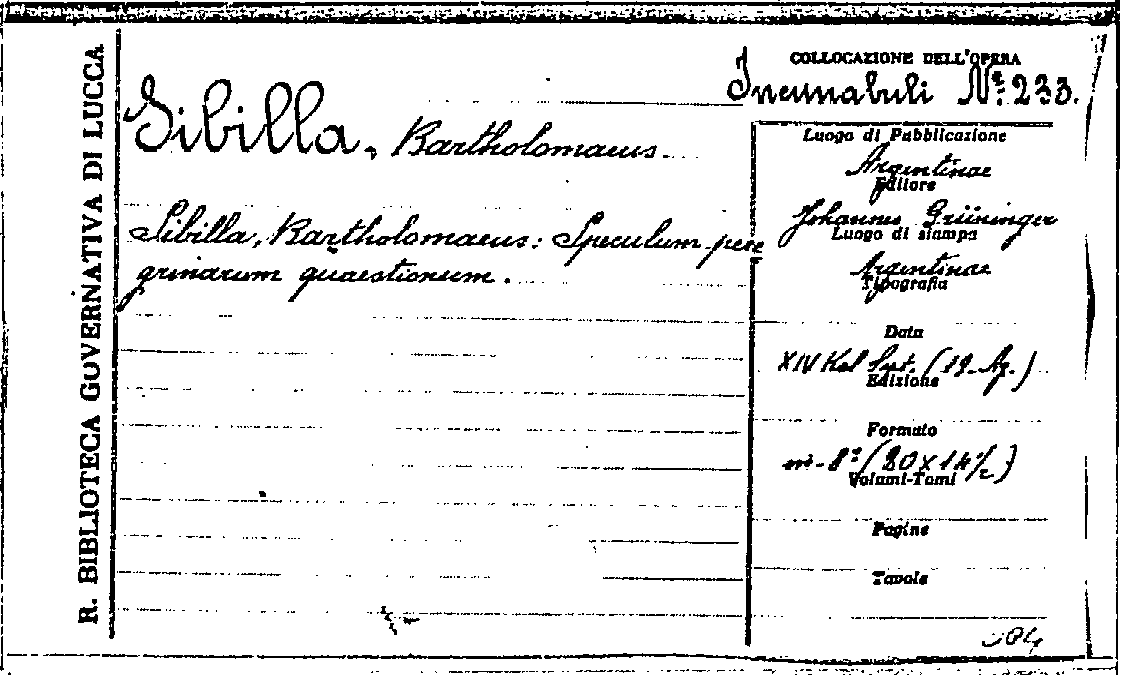 R. BIBLIOTECA GOVERNATIVA DI LUCCA
COLLOCAZIONE DELL'OPERA
Incunabuli Nº 233.
Sibilla, Bartholomaeus.
Sibilla, Bartholomaeus: Speculum pere
grinarum quaestionum.
Luogo di Pubblicazione
Argentinae
Editore
Johannes Grüninger
Luogo di stampa
Argentinae
Tipografia
Data
XIV Kal Sept. (19. Ag.)
Edizione
Formato
in-8º (20 x 14½)
Volumi-Tomi
Pagine
Tavole